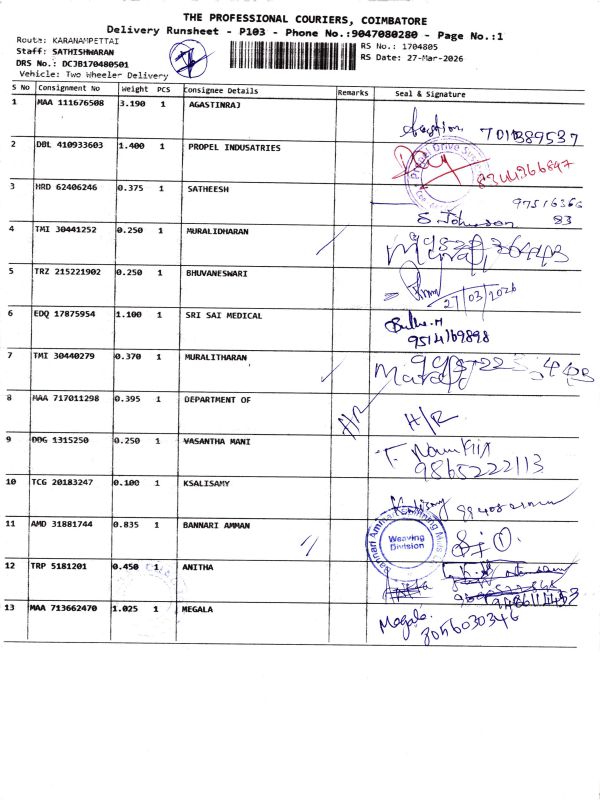 THE PROFESSIONAL COURIERS, COIMBATORE
Delivery Runsheet - P103 - Phone No.:9047080280 - Page No.:1
Route: KARANAMPETTAI
Staff: SATHISHWARAN
DRS No.: DCJB170480501
Vehicle: Two Wheeler Delivery
RS No.: 1704805
RS Date: 27-Mar-2026
S No Consignment No Weight PCS Consignee Details Remarks Seal & Signature
1 MAA 111676508 3.190 1 AGASTINRAJ
2 DBL 410933603 1.400 1 PROPEL INDUSATRIES
8344366847
3 HRD 62406246 0.375 1 SATHEESH
S. Johnson 83
4 TMI 30441252 0.250 1 MURALIDHARAN
5 TRZ 215221902 0.250 1 BHUVANESWARI
27/03/2026
6 EDQ 17875954 1.100 1 SRI SAI MEDICAL
9514769898
7 TMI 30440279 0.370 1 MURALITHARAN
8 MAA 717011298 0.395 1 DEPARTMENT OF
H/R H/R
9 DDG 1315250 0.250 1 VASANTHA MANI
9865222113
10 TCG 20183247 0.100 1 KSALISAMY
11 AMD 31881744 0.835 1 BANNARI AMMAN
Weaving
Division
12 TRP 5181201 0.450 1 ANITHA
13 MAA 713662470 1.025 1 MEGALA
Megala.
8056030346